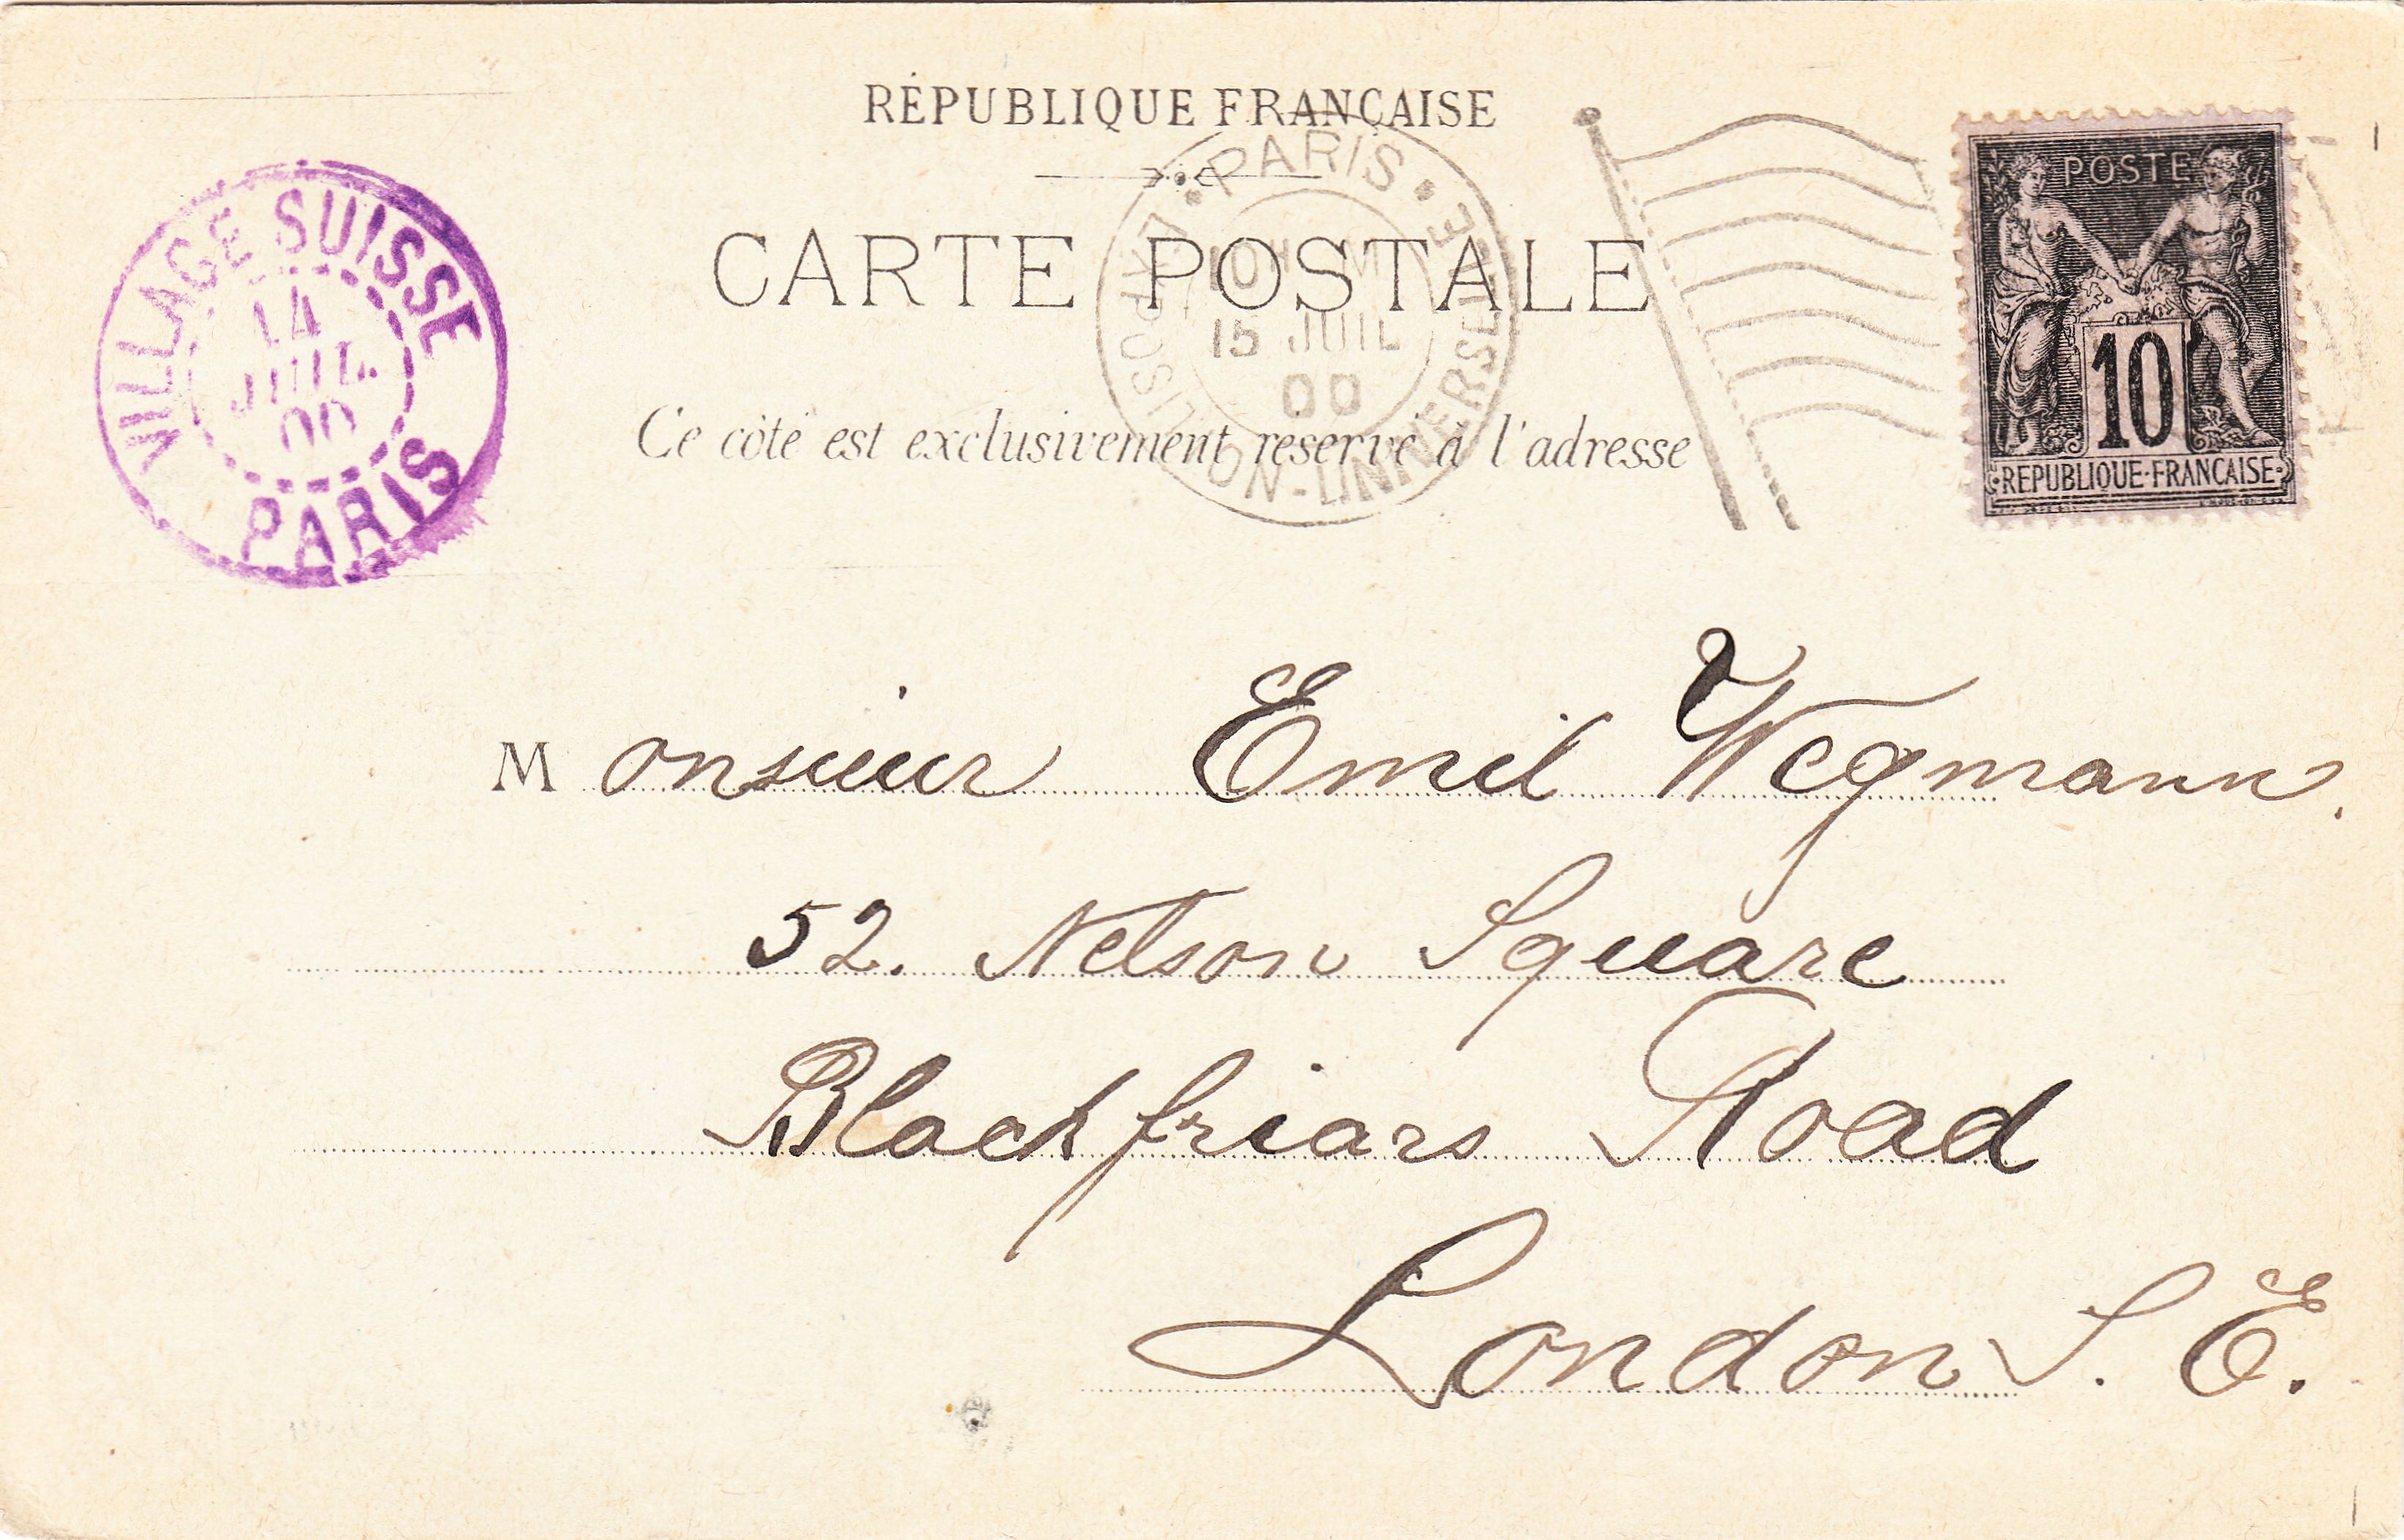 RÉPUBLIQUE FRANÇAISE
CARTE POSTALE
Ce côté est exclusivement réservé à l'adresse
VILLAGE SUISSE
14
JUIL.
00
PARIS
PARIS
EXPOSITION-UNIVERSELLE
15 JUIL
00
POSTE
10
REPUBLIQUE·FRANCAISE
Monsieur Emil Wegmann.
52. Nelson Square
Blackfriars Road
London S. E.